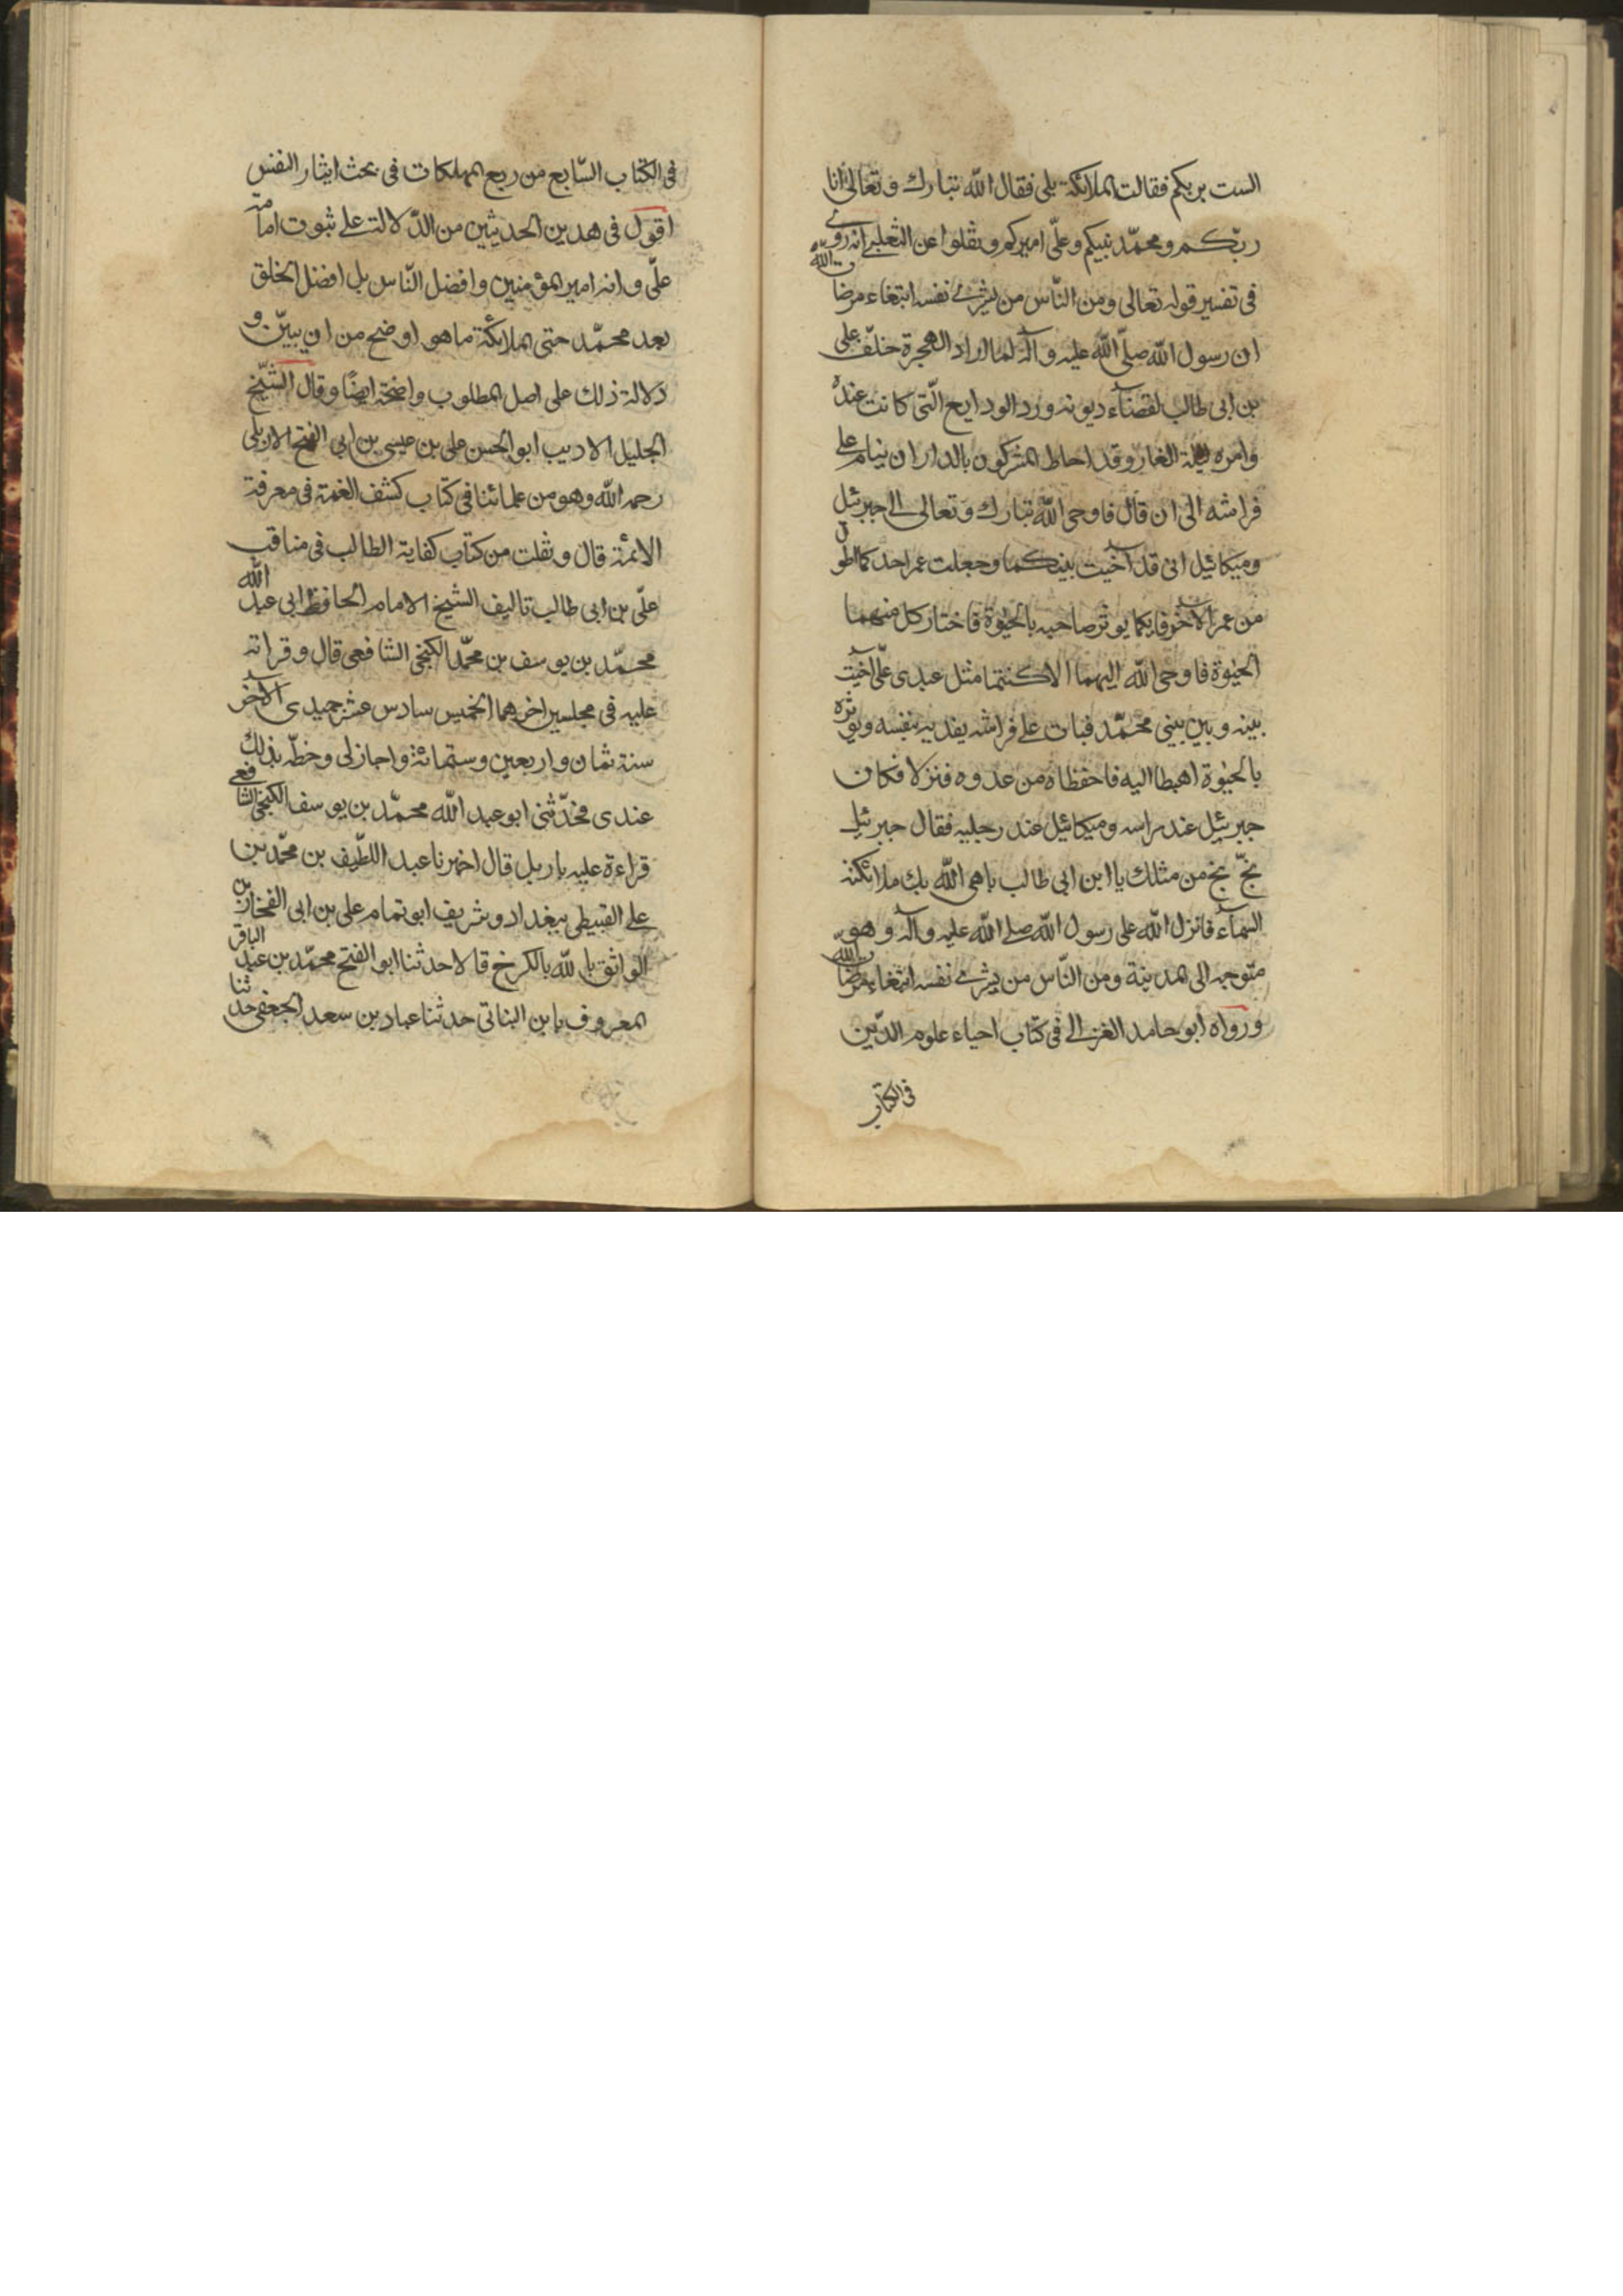 الست بربكم فقالت الملائكة بلى فقال الله تبارك وتعالى انا
ربّكم ومحمّد نبيكم وعلّى اميركم ونقلوا عن الثعلبے انه روے
فى تفسير قوله تعالى ومن النّاس من يشرے نفسه ابتغاء مرضات الله
ان رسول الله صلّى الله عليه وآله لما اراد الهجرة خلّف على
بن ابى طالب لقضاء ديونه ورد الودايع الّتى كانت عنده
وامره ليلة الغار وقد احاط المشركون بالدار ان ينام على
فراشه الى ان قال فاوحى الله تبارك وتعالى الى جبرئيل
وميكائيل انى قد آخيت بينكما وجعلت عمر احدكما اطول
من عمر الآخر فايكما يوثر صاحبه بالحيوٰة فاختار كل منهما
الحيوٰة فاوحى الله اليهما الا كنتما مثل عبدى علّى آخيت
بينه وبين بينى محمّد فبات على فراشه يفديه بنفسه ويوثره
بالحيوٰة اهبطا اليه فاحفظاه من عدوه فنزلا فكان
جبرئيل عند راسه وميكائيل عند رجليه فقال جبرئيل
بخّ بخ من مثلك يا ابن ابى طالب باهى الله بك ملائكته
السمآء فانزل الله على رسول الله صلے الله عليه وآله وهو
متوجه الى المدينة ومن النّاس من يشرے نفسه ابتغاء مرضات الله
ورواه ابو حامد الغزالے فى كتاب احياء علوم الدّين
فى الكتاب
فى الكتاب السّابع من ربع المهلكات فى بحث ايثار النفس
اقول فى هدين الحديثين من الدّلالت على ثبوت امامة
علّى وانه امير المؤمنين وافضل النّاس بل افضل الخلق
بعد محمّد حتى الملائكة ما هو اوضح من ان يبيّن و
دلالة ذلك على اصل المطلوب واضحة ايضًا وقال الشيّخ
الجليل الاديب ابو الحسن على بن عيسى بن ابى الفتح الاربلى
رحمه الله وهو من علمائنا فى كتاب كشف الغمة فى معرفة
الائمة قال ونقلت من كتاب كفاية الطالب فى مناقب
علّى بن ابى طالب تاليف الشيخ الامام الحافظ ابى عبد الله
محمّد بن يوسف بن محمّد الكنجى الشافعى قال وقراته
عليه فى مجلسين اخرهما الخميس سادس عشر جميدى الآخر
سنة ثمان واربعين وستمائة واجاز لى وخطّه بذلك
عندى فحدّثنى ابو عبد الله محمّد بن يوسف الكنجى الشافعى
قراءة عليه باربل قال اخبرنا عبد اللطّيف بن محمّد بن
على القبيطى ببغداد وشريف ابو تمام على بن ابى الفخار بن
الواثق بالله بالكرخ قالا حدثنا ابو الفتح محمّد بن عبد الباقر
المعروف بابن البناتى حدثنا عباد بن سعد الجعفى حدثنا